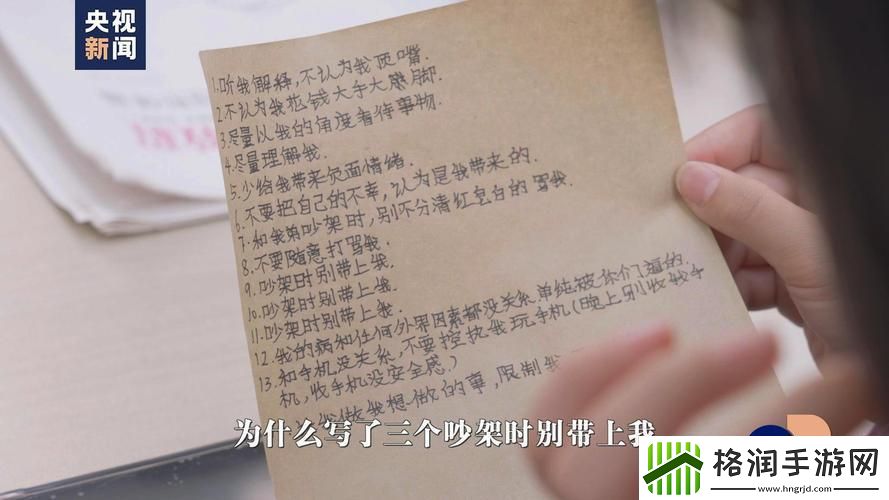 央视
新闻
1.听我解释,不认为我顶嘴.
2.不认为我花钱大手大脚.
3.尽量以我的角度看待事物.
4.尽量理解我.
5.少给我带来负面情绪.
6.不要把自己的不幸,认为是我带来的.
7.和我弟吵架时,别不分清红皂白的骂我.
8.不要随意打骂我.
9.吵架时别带上我.
10.吵架时别带上我.
11.吵架时别带上我.
12.我的病和任何外界因素都没关系单纯被你们逼的.
13.和手机没关系,不要控执我玩手机(晚上别收我手
机,收手机没安全感.)
做我想做的事,限制我
为什么写了三个吵架时别带上我
格润手游网
www.hngrjd.com